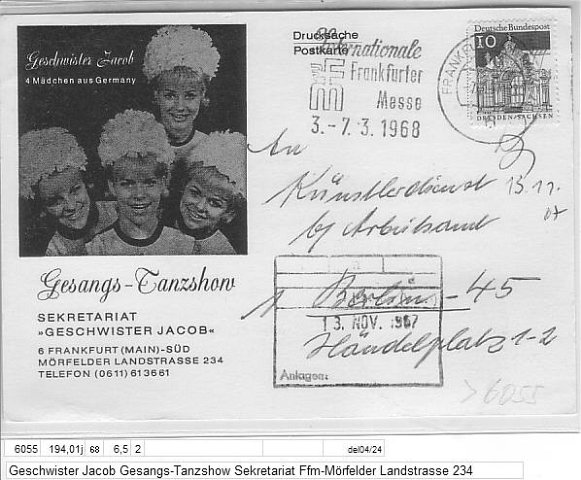 Geschwister Jacob
4 Mädchen aus Germany
Gesangs-Tanzshow
SEKRETARIAT
»GESCHWISTER JACOB«
6 FRANKFURT (MAIN)-SÜD
MÖRFELDER LANDSTRASSE 234
TELEFON (0611) 613661
Drucksache
Postkarte
Internationale
Frankfurter
Messe
3.-7.3.1968
FRANKFURT
Deutsche Bundespost
10
DRESDEN/SACHSEN
An
Künstlerdienst
b/ Arbeitsamt
13.11.
1 Berlin - 45
13. NOV. 1967
Händelplatz 1-2
Anlagen:
>6055
6055 194,01j 68 6,5 2 del04/24
Geschwister Jacob Gesangs-Tanzshow Sekretariat Ffm-Mörfelder Landstrasse 234